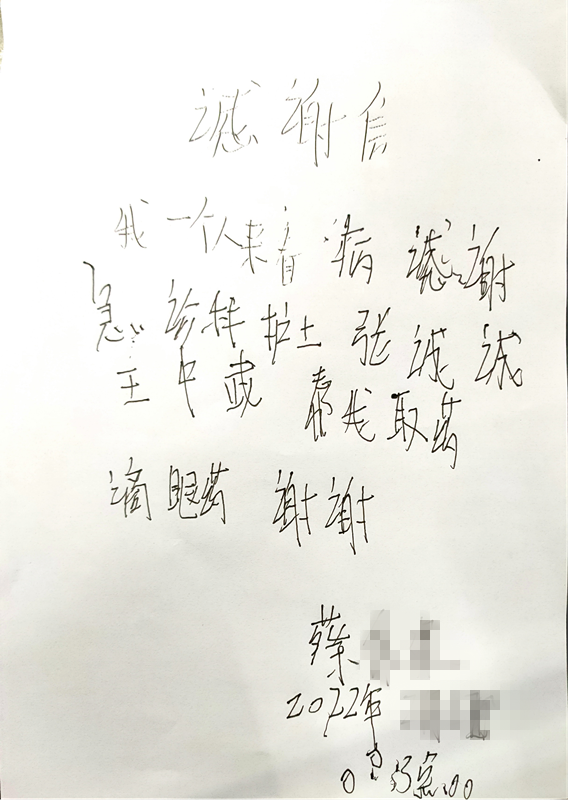 感谢信
我一个人来看病 感谢
急诊科护士 张诚诚
王中 帮我取药
滴眼药 谢谢
蔡
2022年